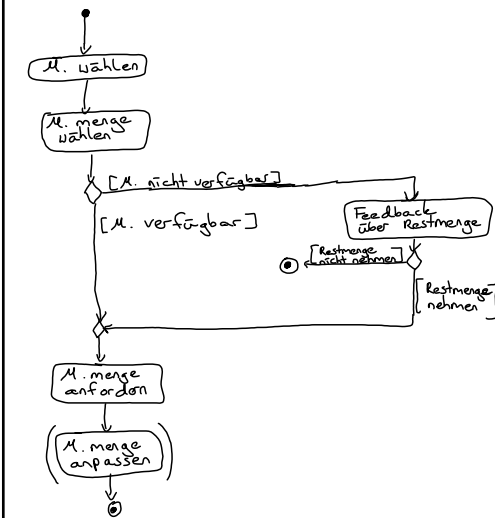 M. wählen
M. menge
wählen
[M. nicht verfügbar]
[M. verfügbar]
Feedback
über Restmenge
[Restmenge
nicht nehmen]
[Restmenge
nehmen]
M. menge
anfordern
(M. menge
anpassen)